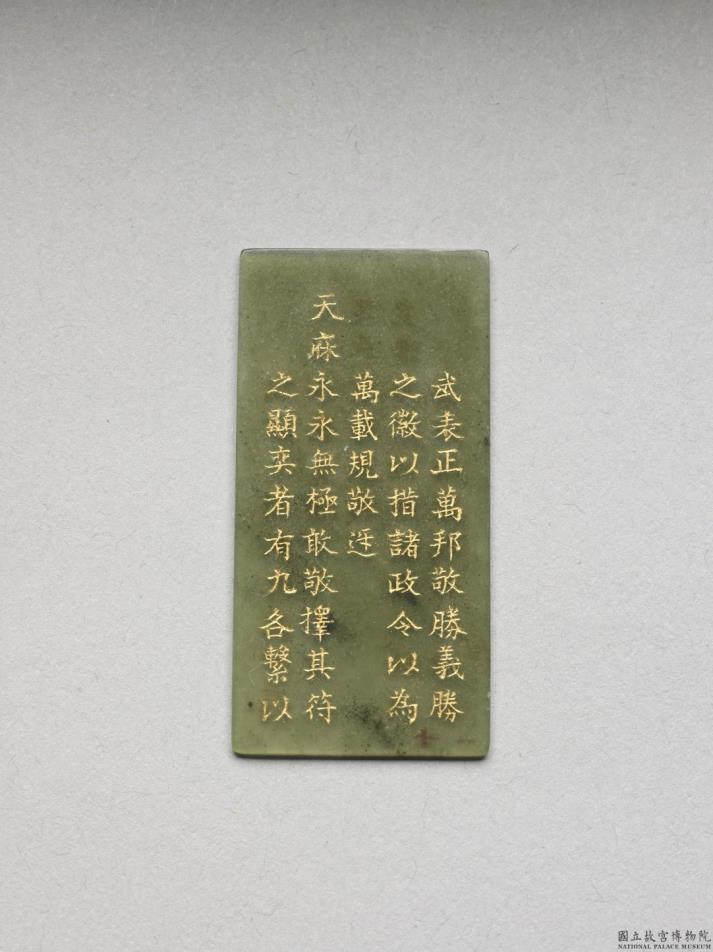 武表正萬邦敬勝義勝
之徽以措諸政令以為
萬載規敬迓
天庥永永無極敢敬擇其符
之顯奕者有九各繫以
國立故宮博物院
NATIONAL PALACE MUSEUM